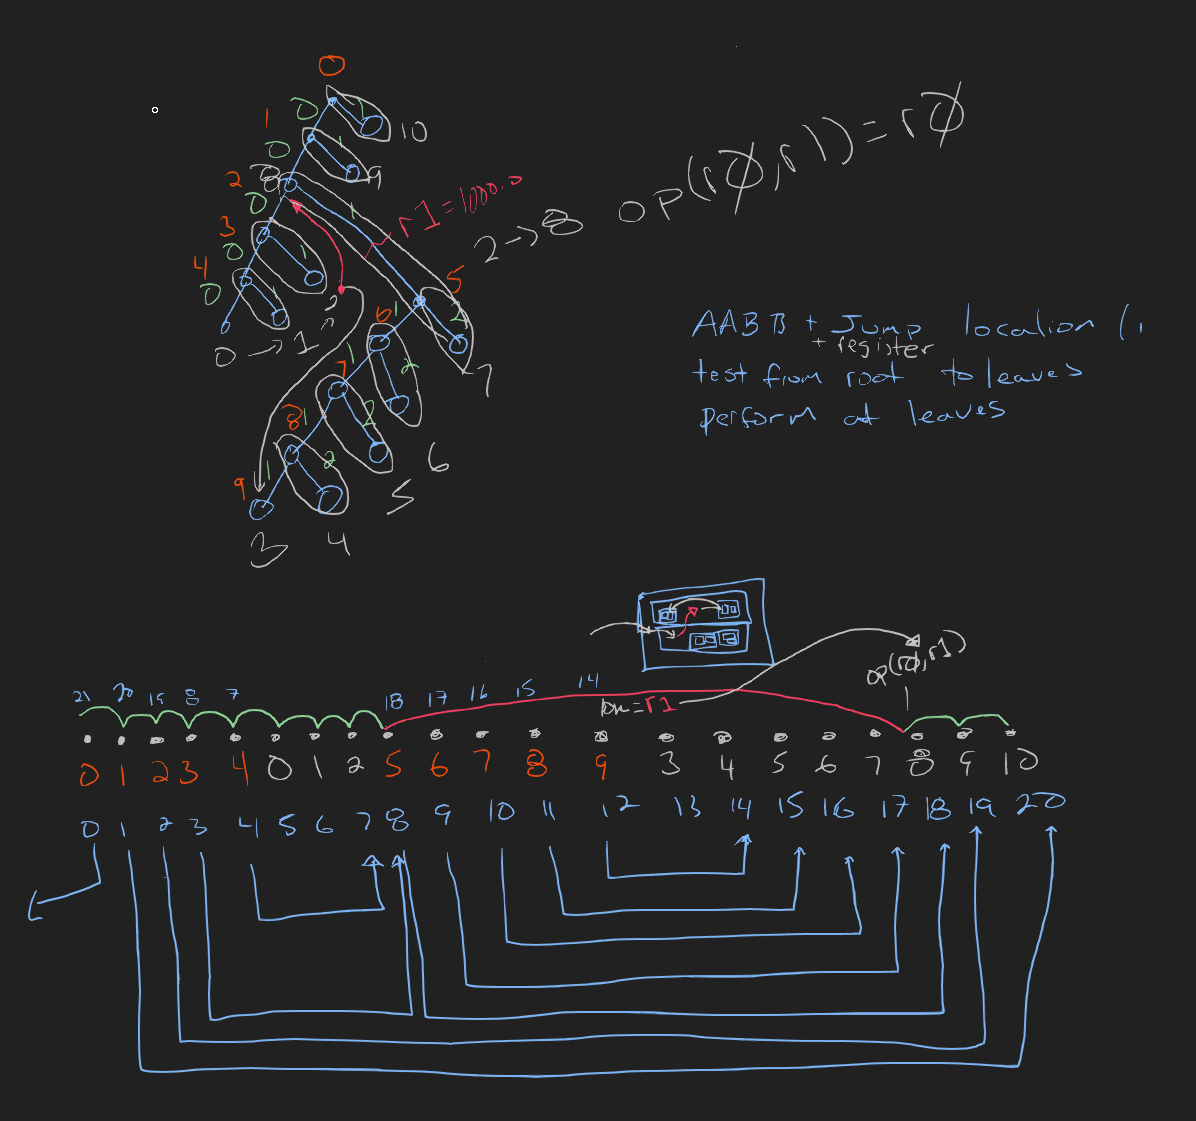 0
0 1 10
1
0 1 9
2 8
0 1 r1=1000.0
3
0 1
4
0 1
0 → 1 2
2→8
op(r0,r1)=r0
5
2
7
6 1
2
6
7 1
2
5
8 1
2
4
9 1
3
AABB + Jump location (
+ register
test from root to leaves
perform at leaves
op(r0,r1)
21 20 19 8 7 18 17 16 15 14
=r1
0 1 2 3 4 0 1 2 5 6 7 8 9 3 4 5 6 7 8 9 10
0 1 2 3 4 5 6 7 8 9 10 11 12 13 14 15 16 17 18 19 20